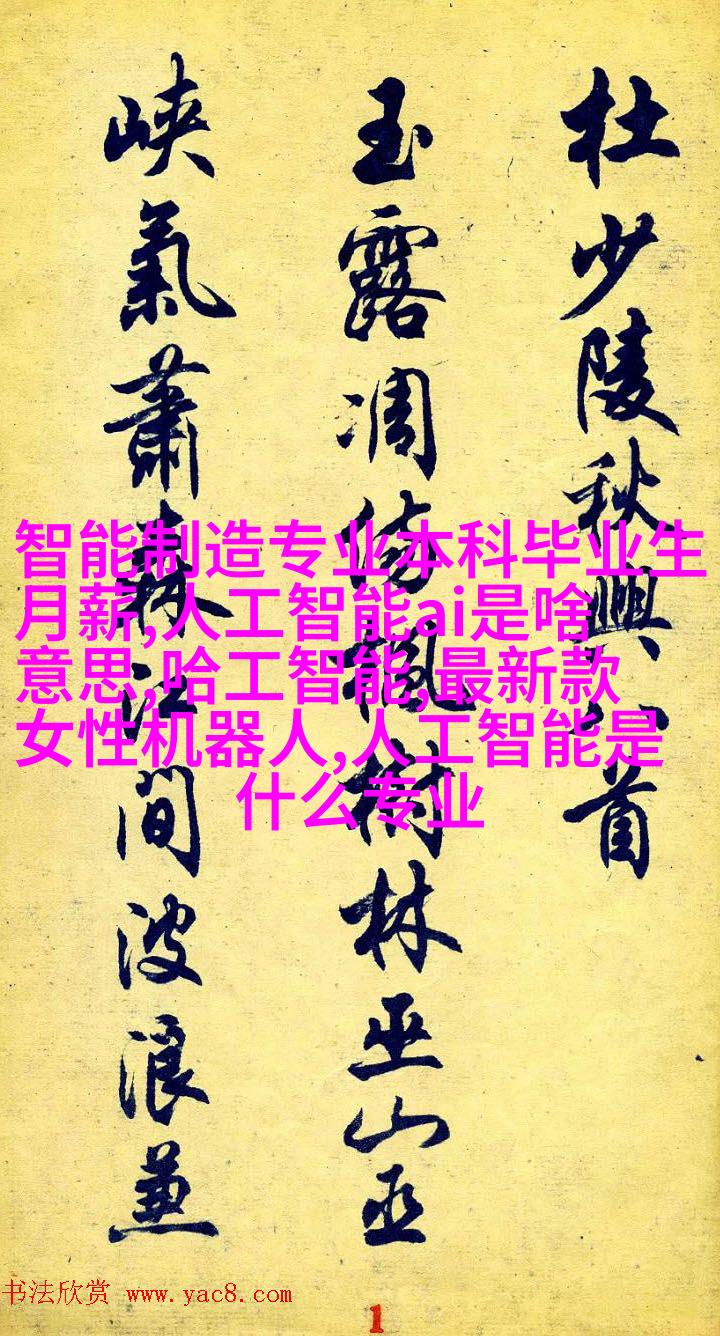 杜少陵秋興八首
玉露凋傷楓樹林巫山巫
峽氣蕭森江間波浪兼
智能制造专业本科毕业生
月薪,人工智能ai是啥
意思,哈工智能,最新款
女性机器人,人工智能是
什么专业
书法欣赏 www.yac8.com
1